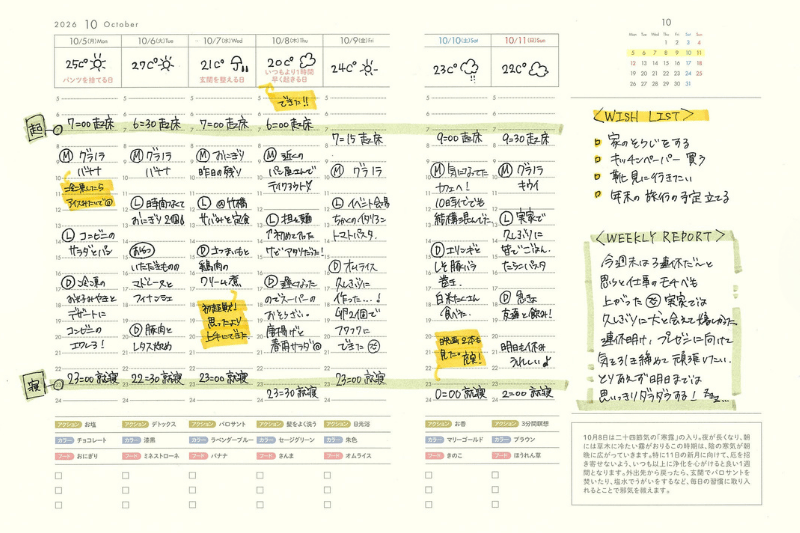 2026 10 October
10/5(月)Mon
25C°
パンツを捨てる日
7=00 起床
Ⓜ グラノラ
バナナ
Ⓛ コンビニの
サラダとパン
Ⓓ 冷凍の
おこのみやきと
デザートに
コンビニの
エクレう!
23=00 就寝
アクション お塩
カラー チョコレート
フード おにぎり
10/6(火)Tue
27C°
6=30 起床
Ⓜ グラノラ
バナナ
Ⓛ 時間なくて
おにぎり2個
おやつ
いただきものの
マドレーヌと
フィナンシェ
Ⓓ 豚肉と
レタス炒め
22=30 就寝
アクション デトックス
カラー 漆黒
フード ミネストローネ
10/7(水)Wed
21C°
玄関を整える日
7=00 起床
Ⓜ おにぎり
昨日の残り
Ⓛ @竹橋
サバみそ定食
Ⓓ さつまいもと
鶏肉の
クリーム煮
初挑戦!
思ったより
上手にできた
23=00 就寝
アクション パロサント
カラー ラベンダーブルー
フード バナナ
10/8(木)Thu
20C°
いつもより1時間
早く起きる日
できた!!
6=00 起床
Ⓜ 近くの
パン屋さんで
テイクアウト
Ⓛ 担々麺
初めて入った
けどアタリだった!
Ⓓ 遅くなった
のでスーパーの
おそうざい。
唐揚げと
春雨サラダ
23=30 就寝
アクション 髪をよく洗う
カラー セージグリーン
フード さんま
10/9(金)Fri
24C°
7=15 起床
Ⓜ グラノラ
Ⓛ イベント会場
ちかくのイタリアン
トマトパスタ.
Ⓓ オムライス
久しぶりに
作った…!
卵2個で
フワフワに
できた
23=00 就寝
アクション 日光浴
カラー 朱色
フード オムライス
10/10(土)Sat
23C°
9=00 起床
Ⓜ 気になってた
カフェへ!
10時台でも
結構混んでた.
Ⓓ エリンギと
しそ豚バラ
巻き.
白米たくさん
食べた.
映画2本も
見た。
0=00 就寝
アクション お香
カラー マリーゴールド
フード きのこ
10/11(日)Sun
22C°
9=30 起床
Ⓜ グラノラ
キウイ
Ⓛ 実家で
久しぶりに
皆でごはん.
たらこパスタ
Ⓓ 急きょ
友達と飲み!
明日も休み
うれしい♪
2=00 就寝
アクション 3分間瞑想
カラー ブラウン
フード ほうれん草
起
寝
10
Mon Tue Wed Thu Fri Sat Sun
1 2 3 4
5 6 7 8 9 10 11
12 13 14 15 16 17 18
19 20 21 22 23 24 25
26 27 28 29 30 31
<WISH LIST>
家のそうじをする
キッチンペーパー 買う
靴 見に行きたい
年末の旅行の予定立てる
<WEEKLY REPORT>
今週末は3連休だ〜と
思うと仕事のモチベも
上がった 実家では
久しぶりに犬と会えて嬉しかった
連休明け、プレゼンに向けて
気を引き締めて頑張りたい.
とりあえず明日までは
思いっきりダラダラする! zzz…
10月8日は二十四節気の「寒露」の入り。夜が長くなり、朝
には草木に冷たい露がおりるこの時期は、陰の寒気が朝
晩に広がっていきます。特に11日の新月に向けて、厄を招
き寄せないよう、いつも以上に浄化を心がけると良い1週間
となります。外出先から戻ったら、玄関でパロサントを
焚いたり、塩水でうがいをするなど、毎日の習慣に取り入
れることで邪気を祓えます。